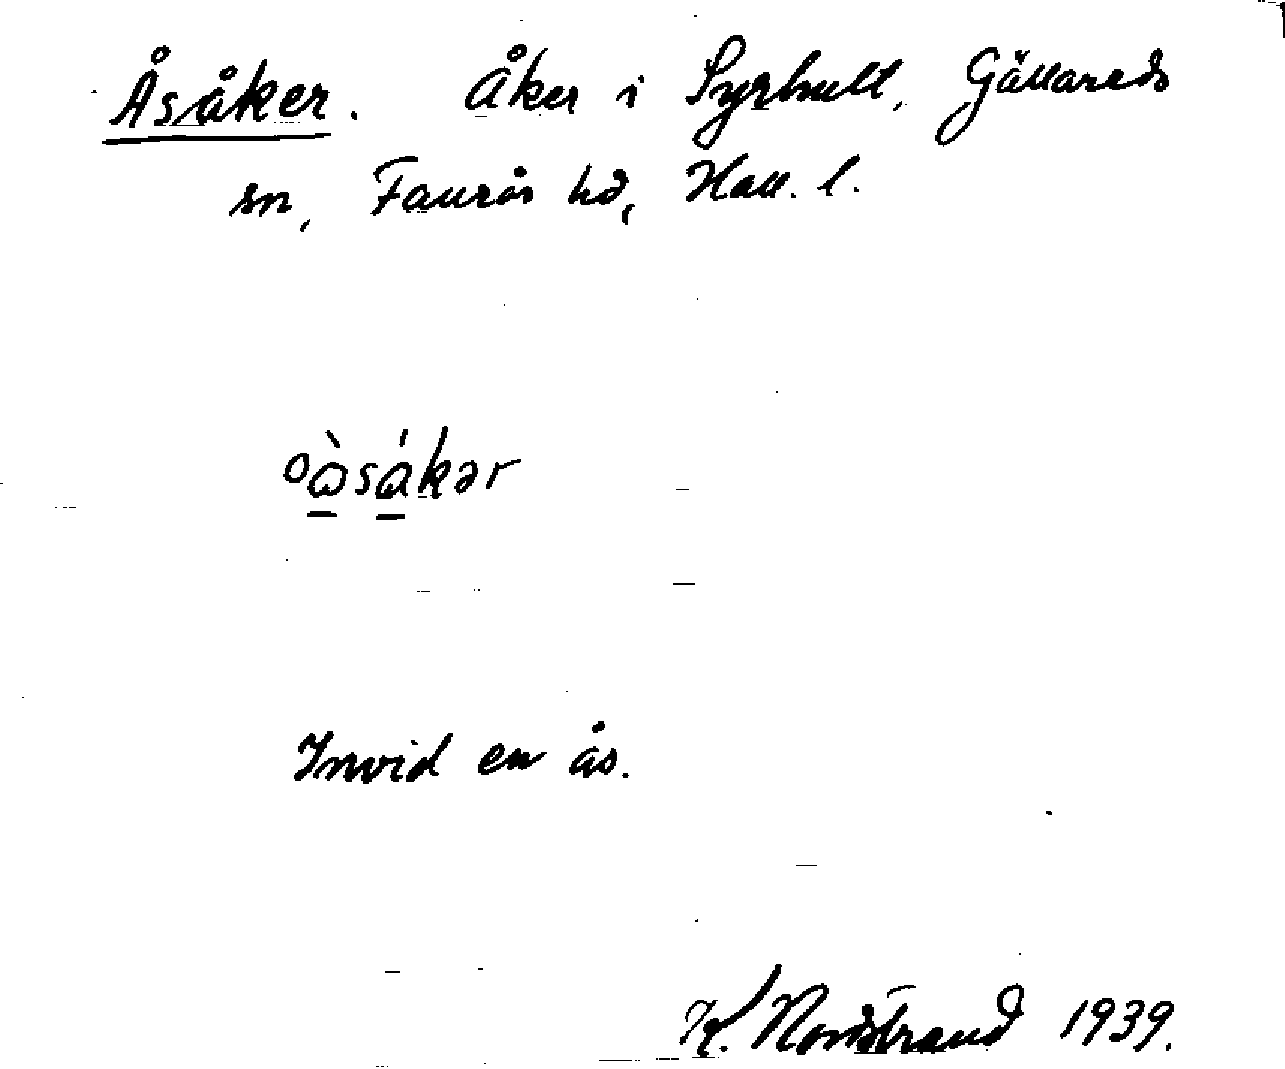 Åsåker. Åker i Syrhult, Gällareds
sn, Faurås hd, Hall. l.
oɷ̀sɷ́kər
Invid en ås.
K. Nordstrand 1939.